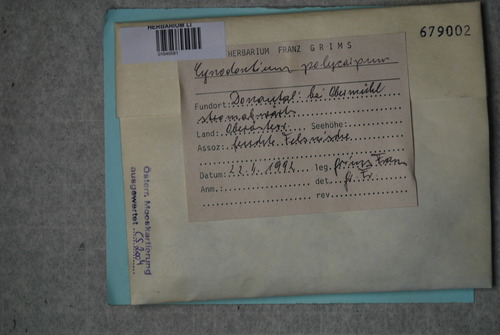 HERBARIUM LI
679002
HERBARIUM FRANZ GRIMS
Cynodontium polycarpum
Fundort: Donautal: bei Obermühl
stromabwärts
Land: Oberösterr. Seehöhe:
Assoz: feuchte Felsnische
Datum: 22. 4. 1992 leg. Grims Franz
Anm.: det. Fr.
rev.
Österr. Mooskartierung
ausgewertet